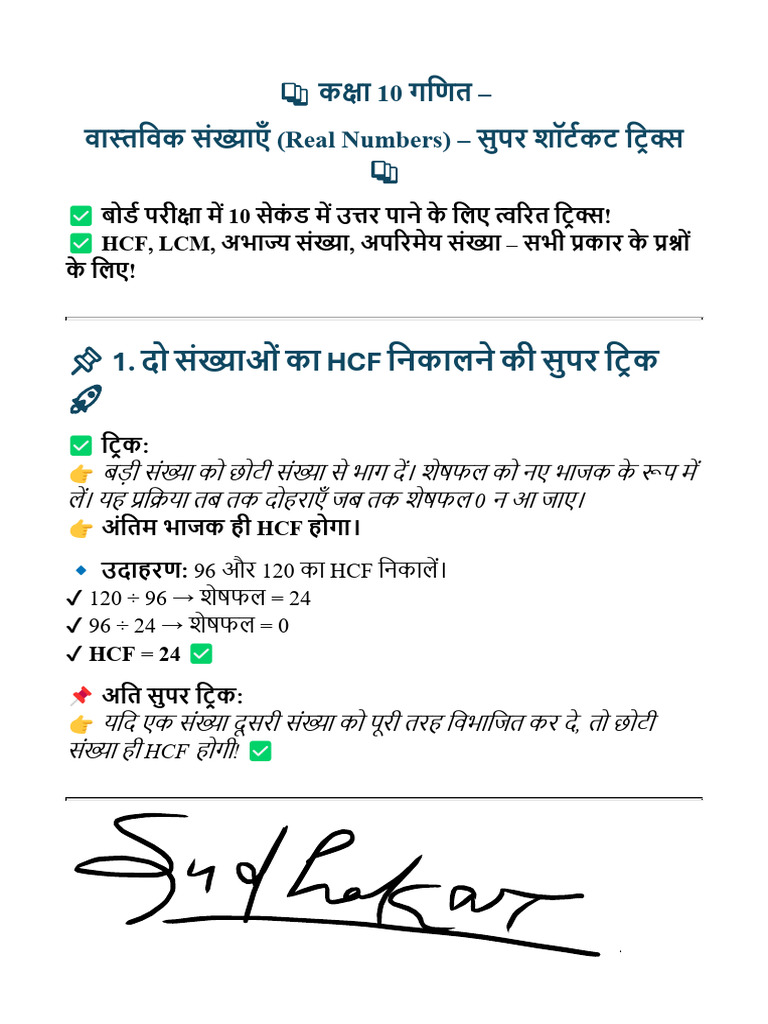 📚 कक्षा 10 गणित –
वास्तविक संख्याएँ (Real Numbers) – सुपर शॉर्टकट ट्रिक्स
📚
✅ बोर्ड परीक्षा में 10 सेकंड में उत्तर पाने के लिए त्वरित ट्रिक्स!
✅ HCF, LCM, अभाज्य संख्या, अपरिमेय संख्या – सभी प्रकार के प्रश्नों
के लिए!
📌 1. दो संख्याओं का HCF निकालने की सुपर ट्रिक
🚀
✅ ट्रिक:
👉 बड़ी संख्या को छोटी संख्या से भाग दें। शेषफल को नए भाजक के रूप में
लें। यह प्रक्रिया तब तक दोहराएँ जब तक शेषफल 0 न आ जाए।
👉 अंतिम भाजक ही HCF होगा।
🔹 उदाहरण: 96 और 120 का HCF निकालें।
✔ 120 ÷ 96 → शेषफल = 24
✔ 96 ÷ 24 → शेषफल = 0
✔ HCF = 24 ✅
📌 अति सुपर ट्रिक:
👉 यदि एक संख्या दूसरी संख्या को पूरी तरह विभाजित कर दे, तो छोटी
संख्या ही HCF होगी! ✅
Sudhakar